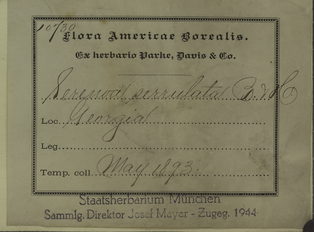 10/30
Flora Americae Borealis.
Ex herbario Parke, Davis & Co.
Serenoa serrulata B. & H
Loc. Georgia
Leg.
Temp. coll. May 1893.
Staatsherbarium München
Sammlg. Direktor Josef Mayer - Zugeg. 1944